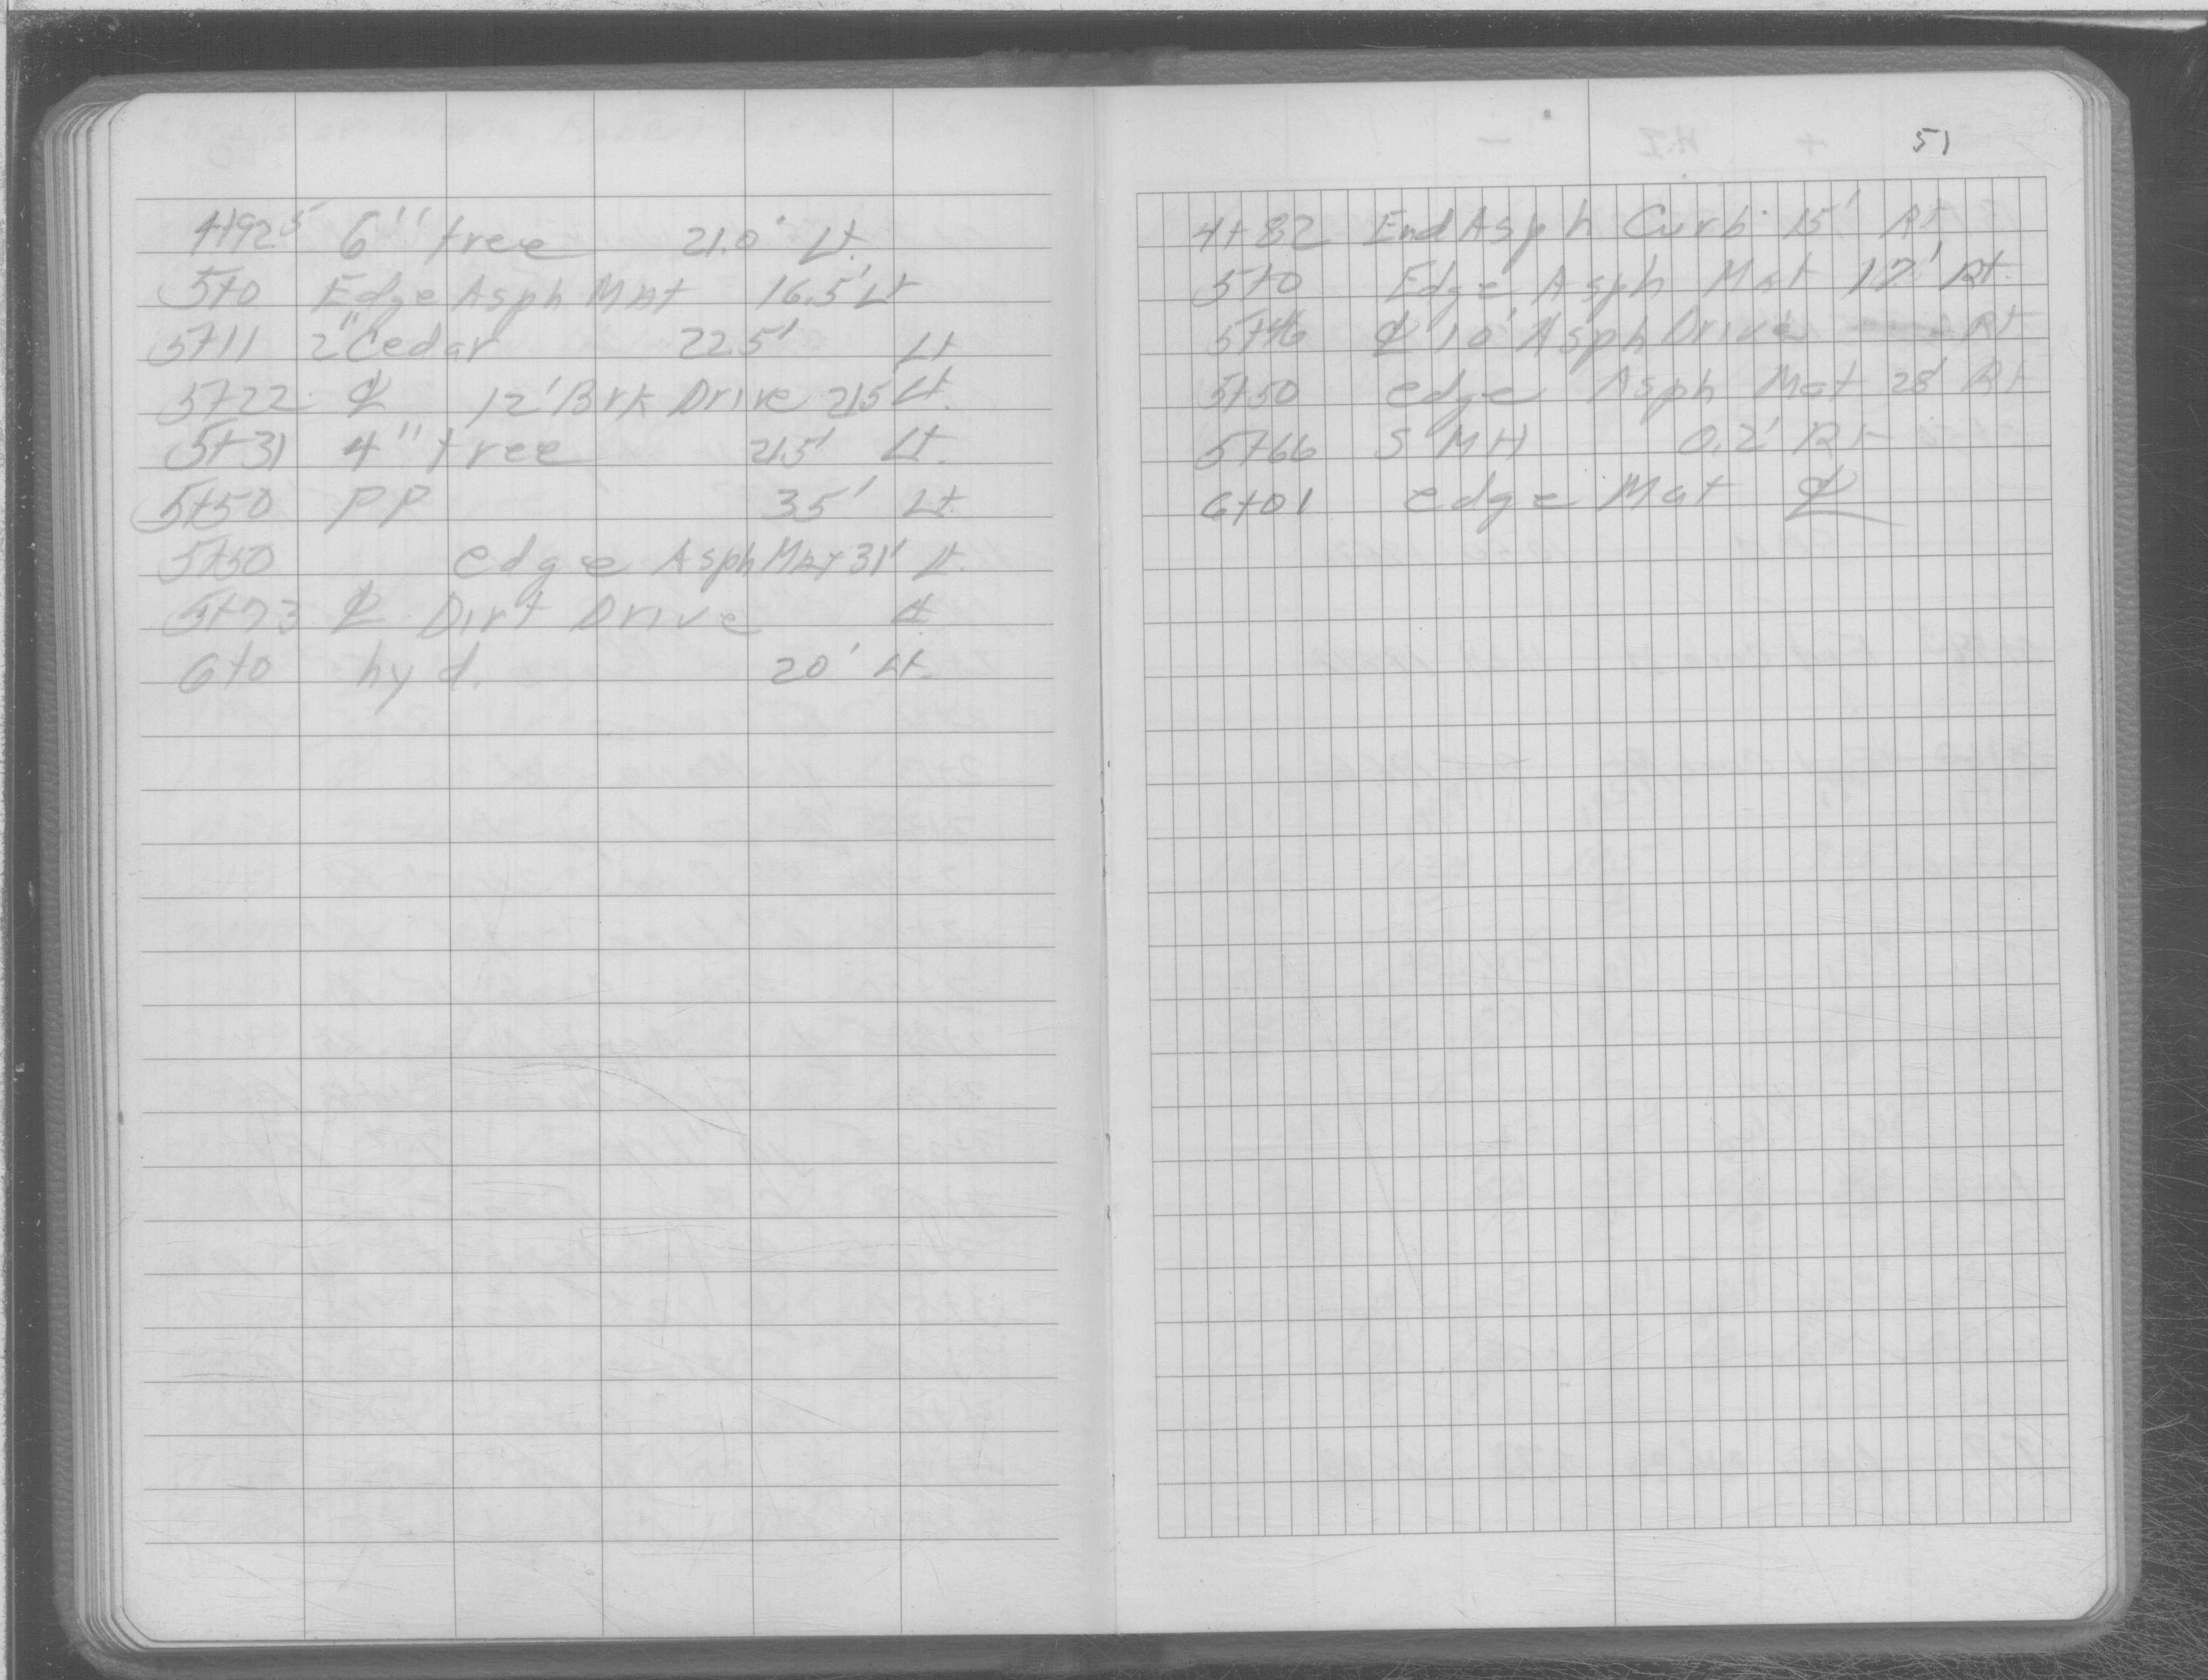 4+92⁵ 6" tree 21.0' Lt.
5+0 Edge Asph Mat 16.5' Lt
5+11 2" Cedar 22.5' Lt
5+22 ℄ 12' Brk Drive 21.5 Lt.
5+31 4" tree 21.5' Lt.
5+50 PP 35' Lt.
5+50 edge Asph Mat 31' Lt.
5+73 ℄ Dirt Drive Lt
6+0 hyd. 20' Lt.
51
4+82 End Asph Curb 15' Rt
5+0 Edge Asph Mat 17' Rt.
5+46 ℄ 10' Asph Drive Rt
5+50 edge Asph Mat 28' Rt
5+66 S MH 0.2' Rt
6+01 edge Mat ℄